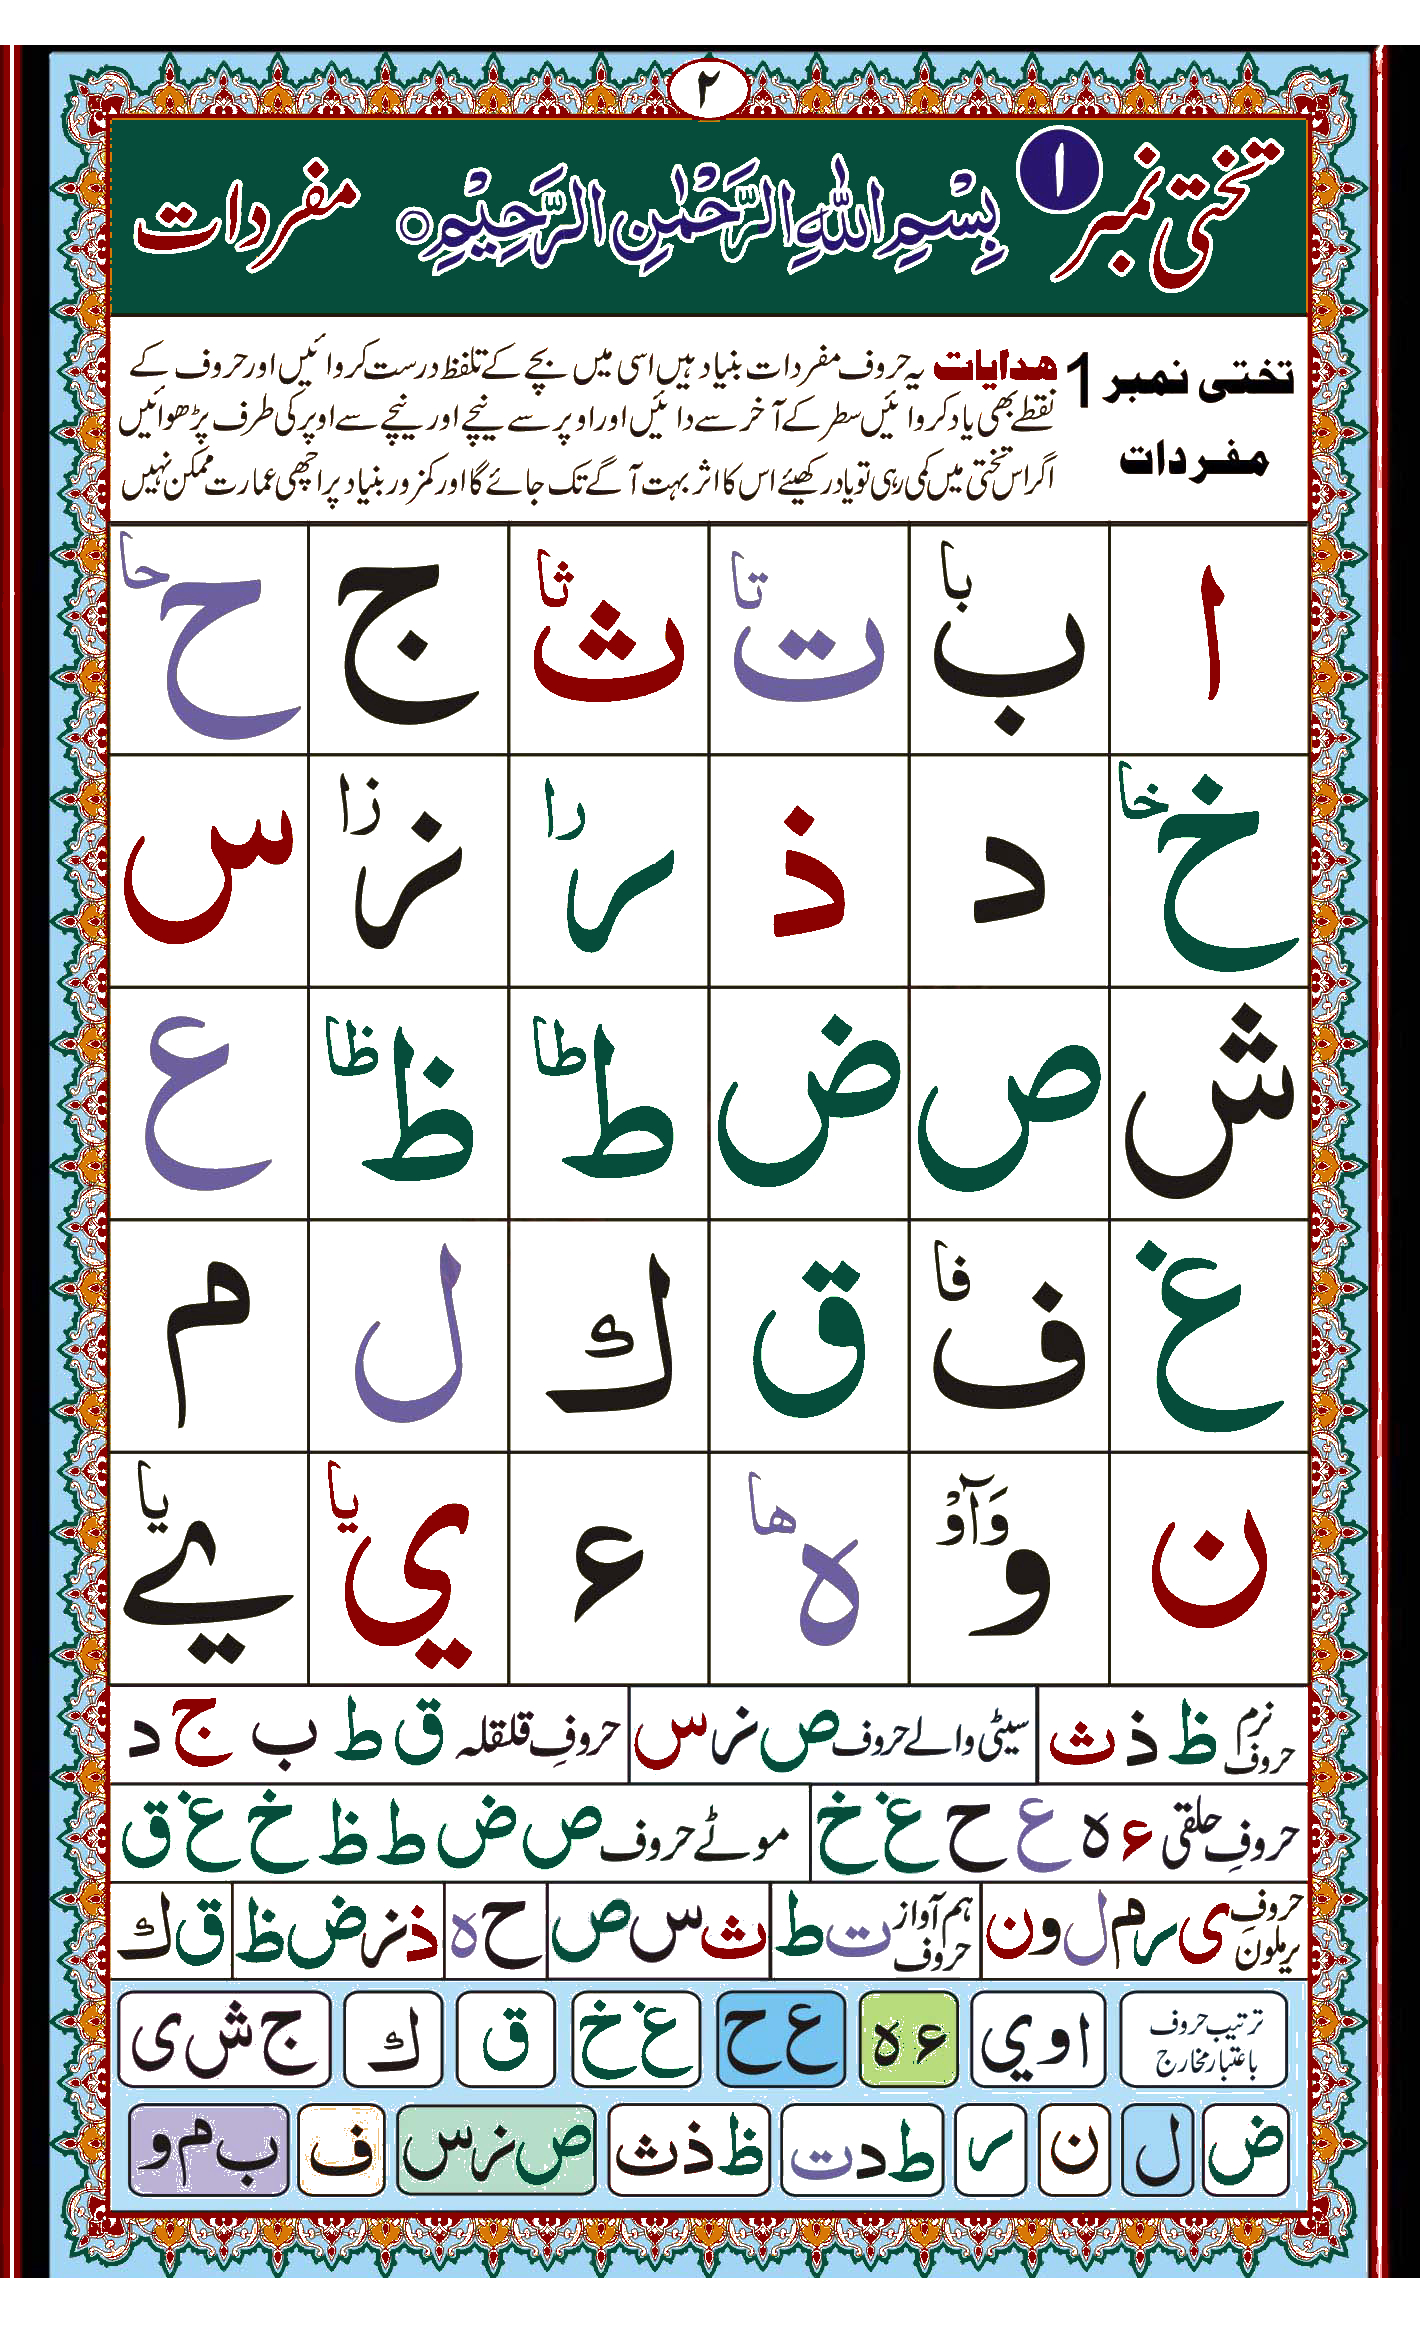 ۲
تختی نمبر ۱ بِسْمِ اللّٰهِ الرَّحْمٰنِ الرَّحِيْمِ ○ مفردات
تختی نمبر 1
مفردات
ھدایات یہ حروف مفردات بنیاد ہیں اسی میں بچے کے تلفظ درست کروائیں اور حروف کے
نقطے بھی یاد کروائیں سطر کے آخر سے دائیں اور اوپر سے نیچے اور نیچے سے اوپر کی طرف پڑھوائیں
اگر اس تختی میں کمی رہی تو یاد رکھیئے اس کا اثر بہت آگے تک جائے گا اور کمزور بنیاد پر اچھی عمارت ممکن نہیں
ا ب با ت تا ث ثا ج ح حا
خ خا د ذ ر را ز زا س
ش ص ض ط طا ظ ظا ع
غ ف فا ق ك ل م
ن و وَآوْ ه ها ء ي يا ے يا
نرم حروف ظ ذ ث سیٹی والے حروف ص ز س حروفِ قلقلہ ق ط ب ج د
حروفِ حلقی ء ه ع ح غ خ موٹے حروف ص ض ط ظ خ غ ق
حروفِ یرملون ی ر م ل و ن ہم آواز حروف ت ط ث س ص ح ه ذ ز ض ظ ق ك
ترتیب حروف باعتبار مخارج ا و ي ء ه ع ح غ خ ق ك ج ش ی
ض ل ن ر ط د ت ظ ذ ث ص ز س ف ب م و